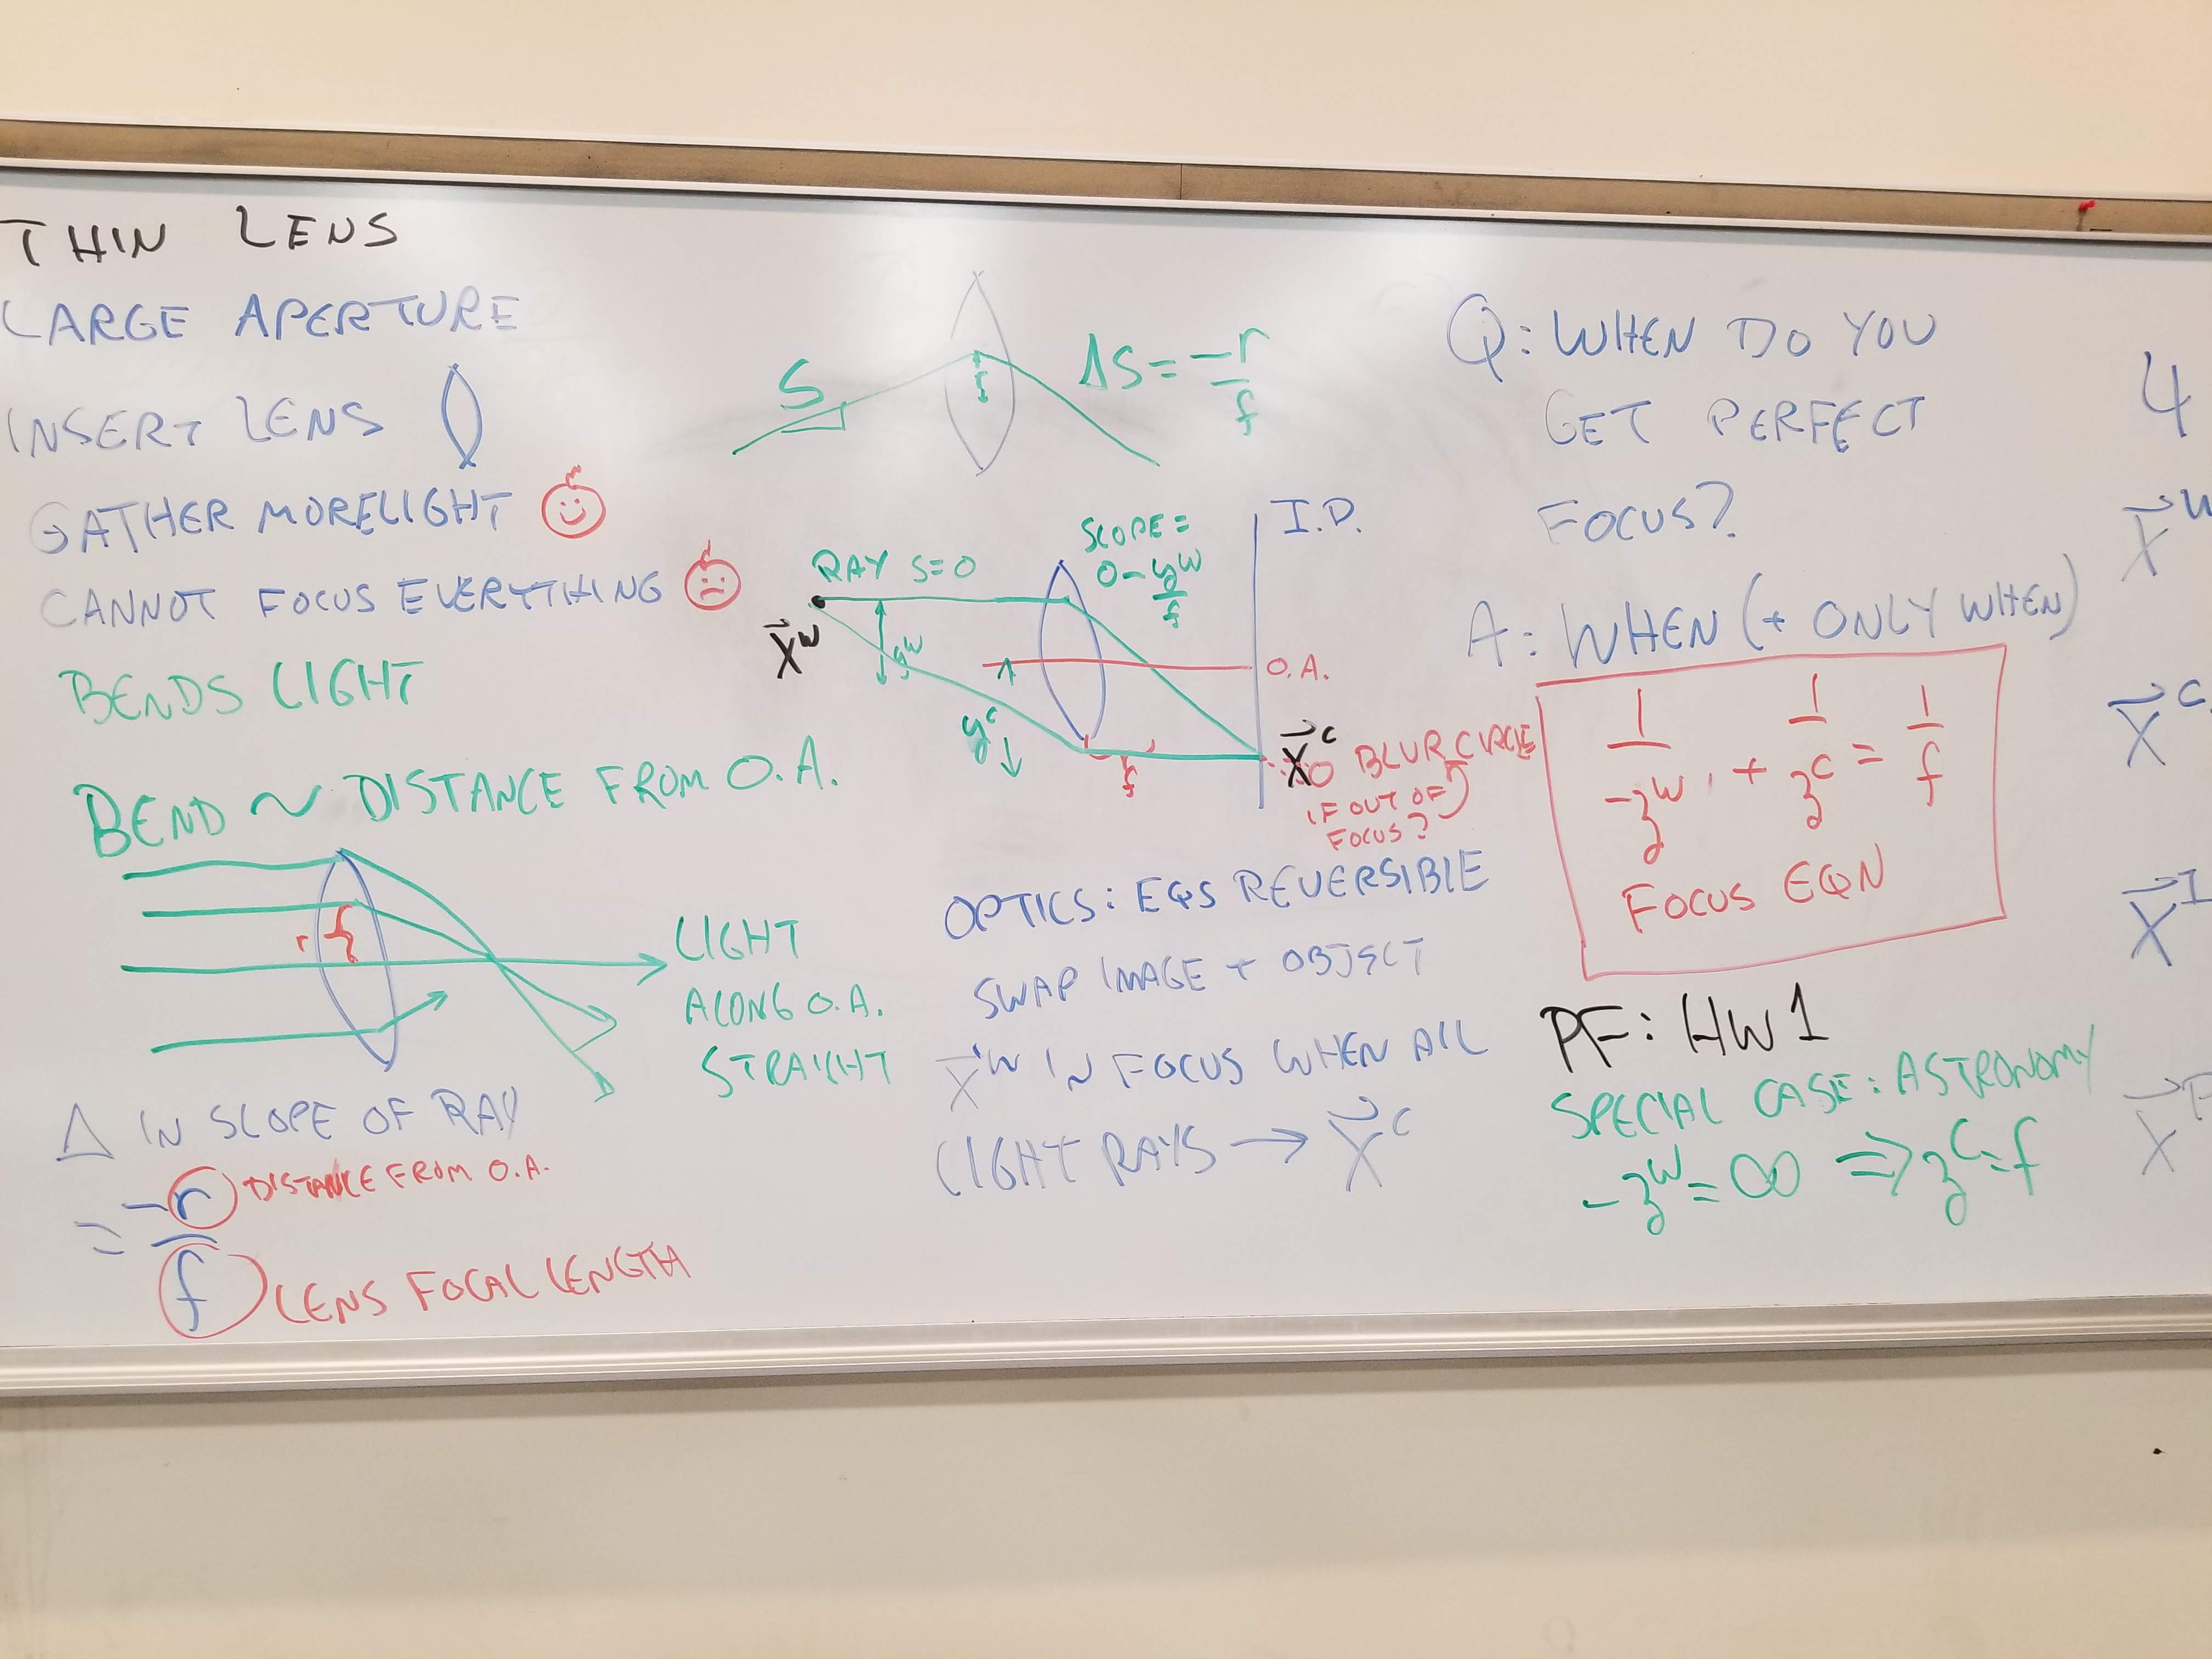 THIN LENS
LARGE APERTURE
INSERT LENS
GATHER MORE LIGHT
CANNOT FOCUS EVERYTHING
BENDS LIGHT
BEND ~ DISTANCE FROM O.A.
r
LIGHT
ALONG O.A.
STRAIGHT
Δ IN SLOPE OF RAY
= -r/f
DISTANCE FROM O.A.
LENS FOCAL LENGTH
S
r
ΔS = -r/f
I.P.
RAY S=0
SLOPE =
0 - y^w/f
X⃗^w
y^w
O.A.
y^c
f
X⃗^c
BLUR CIRCLE
(IF OUT OF
FOCUS?)
OPTICS: EQS REVERSIBLE
SWAP IMAGE + OBJECT
X⃗^w IN FOCUS WHEN ALL
LIGHT RAYS → X⃗^c
Q: WHEN DO YOU
GET PERFECT
FOCUS?
A: WHEN (+ ONLY WHEN)
1/-z^w + 1/z^c = 1/f
FOCUS EQN
PF: HW1
SPECIAL CASE: ASTRONOMY
-z^w = ∞ ⇒ z^c = f
4
X⃗^w
X⃗^c
X⃗^I
X⃗^P